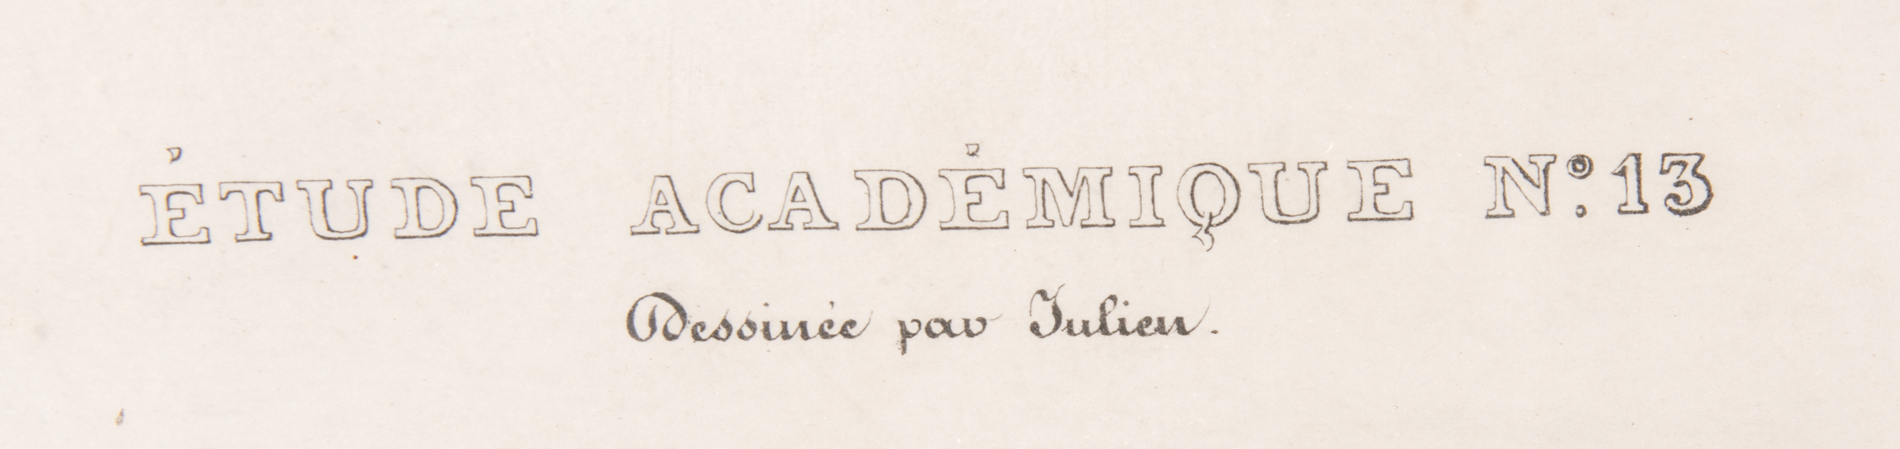 ÉTUDE ACADÉMIQUE Nº. 13
Dessinée par Julien.